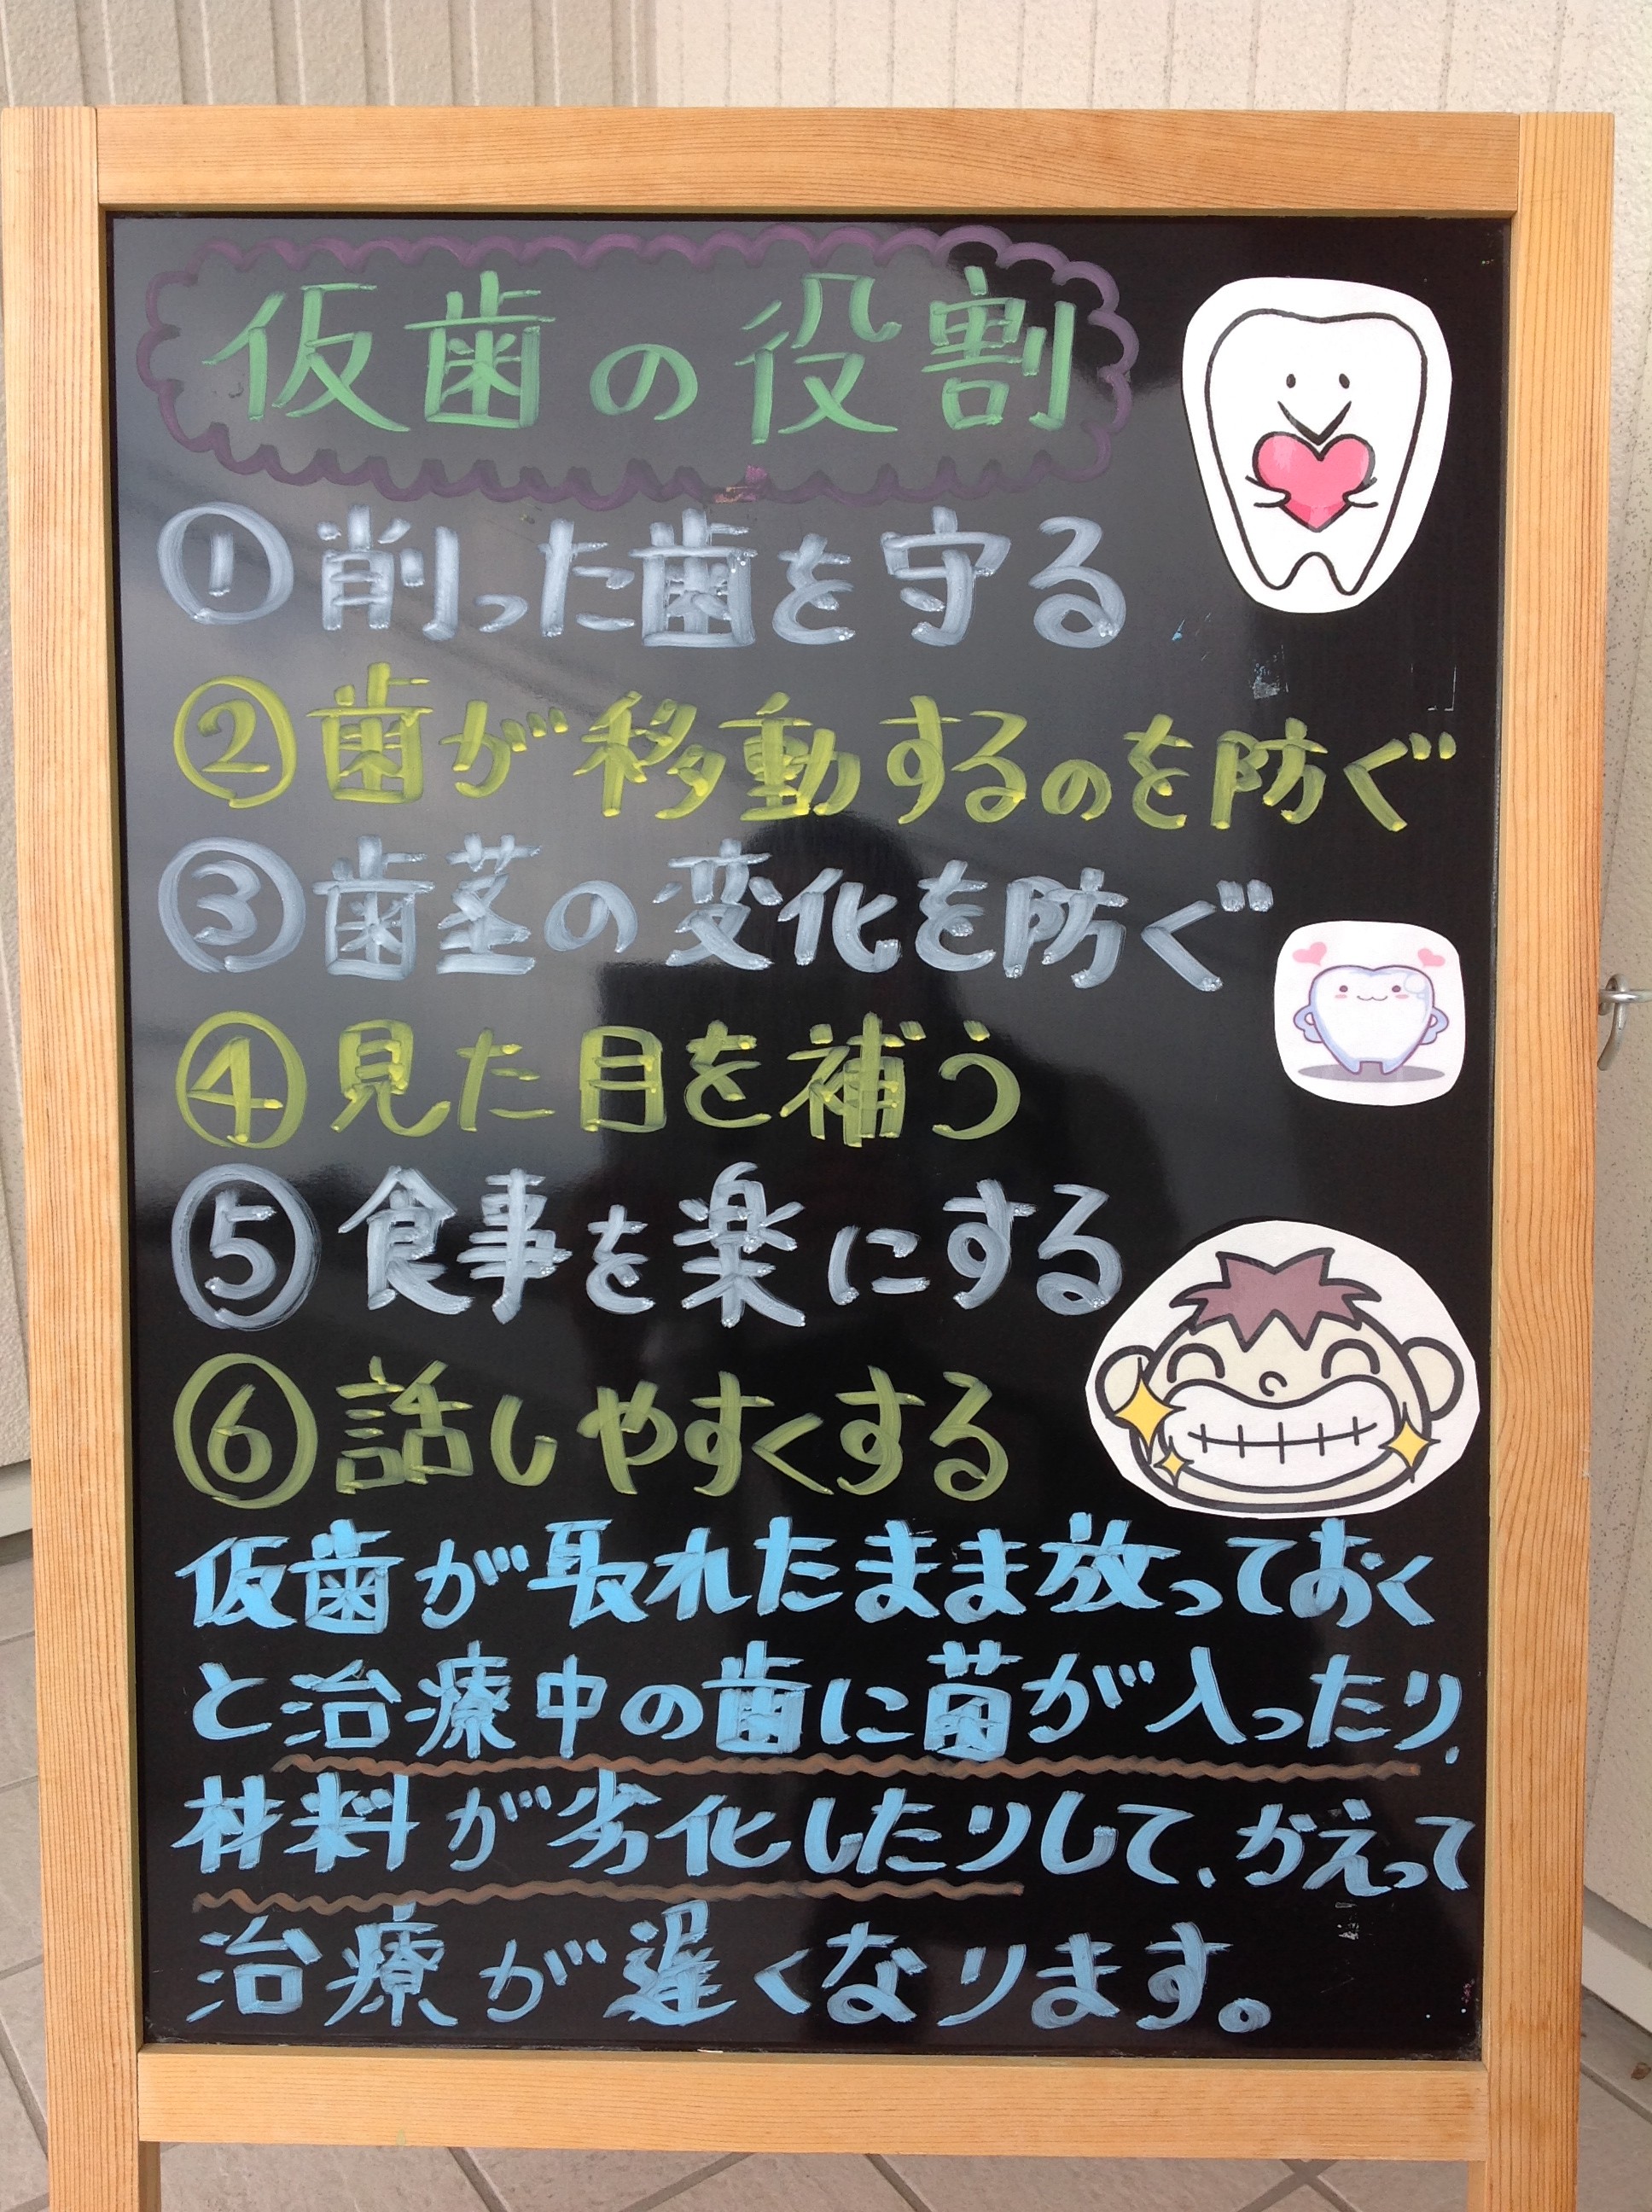 仮歯の役割
①削った歯を守る
②歯が移動するのを防ぐ
③歯茎の変化を防ぐ
④見た目を補う
⑤食事を楽にする
⑥話しやすくする
仮歯が取れたまま放っておく
と治療中の歯に菌が入ったり、
材料が劣化したりして、かえって
治療が遅くなります。